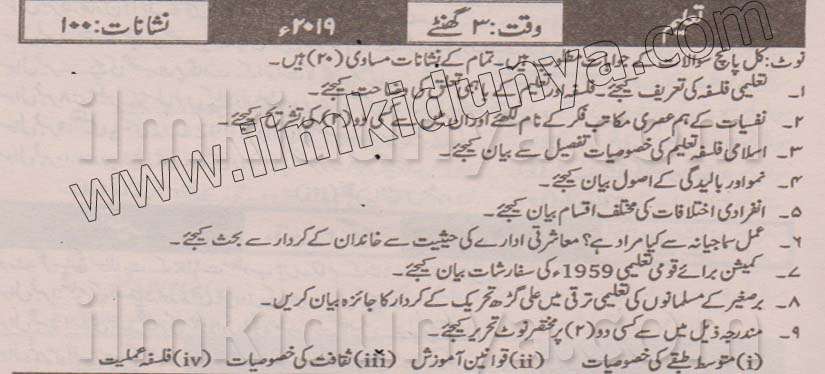 تعلیم
وقت: ۳ گھنٹے
۲۰۱۹ء
نشانات: ۱۰۰
نوٹ: کل پانچ سوالات کے جوابات مطلوب ہیں۔ تمام کے نشانات مساوی (۲۰) ہیں۔
۱۔ تعلیمی فلسفہ کی تعریف کیجئے۔ فلسفہ اور تعلیم کے باہمی تعلق کی وضاحت کیجئے۔
۲۔ نفسیات کے ہم عصری مکاتب فکر کے نام لکھئے اور ان میں سے کسی دو (۲) کی تشریح کیجئے۔
۳۔ اسلامی فلسفہ تعلیم کی خصوصیات تفصیل سے بیان کیجئے۔
۴۔ نمو اور بالیدگی کے اصول بیان کیجئے۔
۵۔ انفرادی اختلافات کی مختلف اقسام بیان کیجئے۔
۶۔ عمل سماجیانہ سے کیا مراد ہے؟ معاشرتی ادارے کی حیثیت سے خاندان کے کردار سے بحث کیجئے۔
۷۔ کمیشن برائے قومی تعلیمی 1959ء کی سفارشات بیان کیجئے۔
۸۔ برصغیر کے مسلمانوں کی تعلیمی ترقی میں علی گڑھ تحریک کے کردار کا جائزہ بیان کریں۔
۹۔ مندرجہ ذیل میں سے کسی دو (۲) پر مختصر نوٹ تحریر کیجئے۔
(i) متوسط طبقے کی خصوصیات (ii) قوانین آموزش (iii) ثقافت کی خصوصیات (iv) فلسفہ عملیت
www.ilmkidunya.com
ilmkidunya.com
ilmkidunya.com